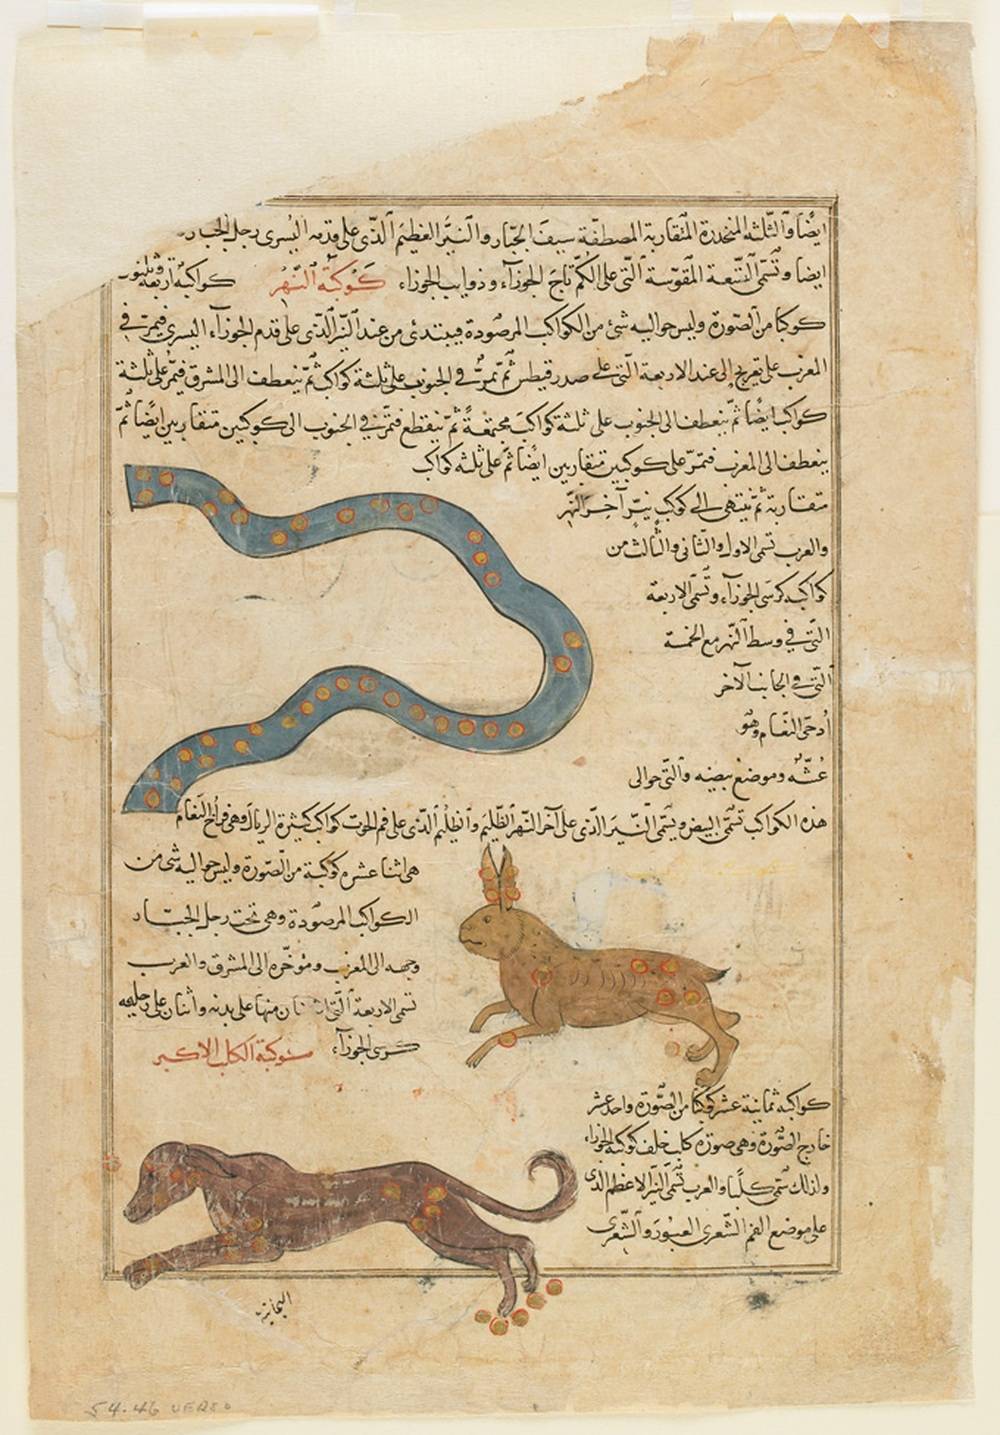 ايضًا والثلثة المنحدرة المتقاربة المصطفة سيف الجبار والنير العظيم الذي على قدمه اليسرى رجل الجبار
ايضا وتسمى التسعة المقوسة التي على الكم تاج الجوزآء وذوايب الجوزاء كوكبة النهر كواكبه اربعة وثلثون
كوكبا من الصورة وليس حواليه شئ من الكواكب المرصودة فيبتدئ من عند النير الذي على قدم الجوزآء اليسرى فيمر في
المغرب على تعريج إلى عند الاربعة التي على صدر قيطس ثم تمر في الجنوب على ثلثة كواكب ثم ينعطف الى المشرق فيمر على ثلثة
كواكب ايضًا ثم ينعطف الى الجنوب على ثلثة كواكب مجتمعةً ثم ينقطع فتمر في الجنوب الى كوكبين متقاربين ايضًا ثم
ينعطف الى المغرب فتمر على كوكبين متقاربين ايضا ثم على ثلثة كواكب
متقاربة ثم ينتهي الى كوكب نير آخر النهر
والعرب تسمى الاول والثاني والثالث من
كواكبه كرسي الجوزآء وتسمى الاربعة
التي في وسط النهر مع الخمسة
التي في الجانب الآخر
أدحى النعام وهو
عشه وموضع بيضه والتي حوالى
هذه الكواكب تسمى البيض ويسمى النير الذي على آخر النهر الظليم والظليم الذي على فم الحوت كواكب كثيرة الريال وهي فراخ النعام
هي اثنا عشره كوكبة من الصورة وليس حواليه شئ من
الكواكب المرصودة وهي تحت رجل الجبار
وجهه الى المغرب ومؤخره الى المشرق والعرب
تسمى الاربعة التي اثنان منها على بدنه واثنان على رجليه
كرسي الجوزآء كوكبة الكلب الاكبر
كواكبه ثمانية عشر كوكبا من الصورة واحد عشر
خارج الصورة وهي صورة كلب خلف كوكبة الجوزاء
ولذلك سمى كلبا والعرب تسمى النير الاعظم الذي
على موضع الفم الشعرى العبور والشعرى
اليمانية
54.46 VERSO